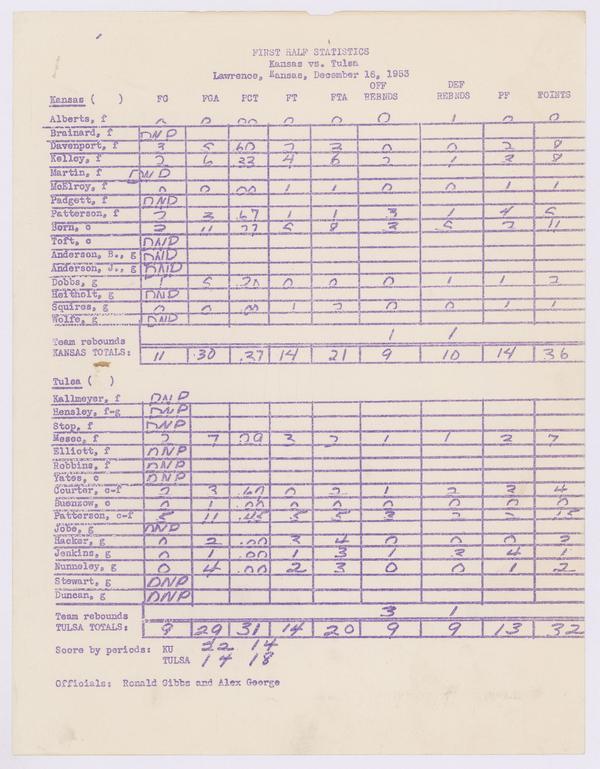 FIRST HALF STATISTICS
Kansas vs. Tulsa
Lawrence, Kansas, December 16, 1953
Kansas ( ) FG FGA PCT FT FTA OFF REBNDS DEF REBNDS PF POINTS
Alberts, f 0 0 .00 0 0 0 1 0 0
Brainard, f DNP
Davenport, f 3 5 .60 2 3 0 0 2 8
Kelley, f 2 6 .33 4 6 2 1 3 8
Martin, f DND
McElroy, f 0 0 .00 1 1 0 0 1 1
Padgett, f DND
Patterson, f 2 3 .67 1 1 3 1 4 5
Born, c 3 11 .27 5 8 3 5 2 11
Toft, c DNP
Anderson, B., g DNP
Anderson, J., g DNP
Dobbs, g 1 5 .20 0 0 0 1 1 2
Heitholt, g DNP
Squires, g 0 0 .00 1 2 0 0 1 1
Wolfe, g DNP
Team rebounds 1 1
KANSAS TOTALS: 11 30 .37 14 21 9 10 14 36
Tulsa ( )
Kallmeyer, f DNP
Hensley, f-g DNP
Stop, f DNP
Mesec, f 2 7 .29 3 7 1 1 2 7
Elliott, f DNP
Robbins, f DNP
Yates, c DNP
Courter, c-f 2 3 .67 0 2 1 2 3 4
Buenzow, c 0 1 .00 0 0 0 0 0 0
Patterson, c-f 5 11 .45 5 5 3 2 15
Jobe, g DNP
Hacker, g 0 2 .00 3 4 0 0 0 3
Jenkins, g 0 1 .00 1 3 1 3 4 1
Nunneley, g 0 4 .00 2 3 0 0 1 2
Stewart, g DNP
Duncan, g DNP
Team rebounds 3 1
TULSA TOTALS: 9 29 31 14 20 9 9 13 32
Score by periods: KU 22 14
TULSA 14 18
Officials: Ronald Gibbs and Alex George